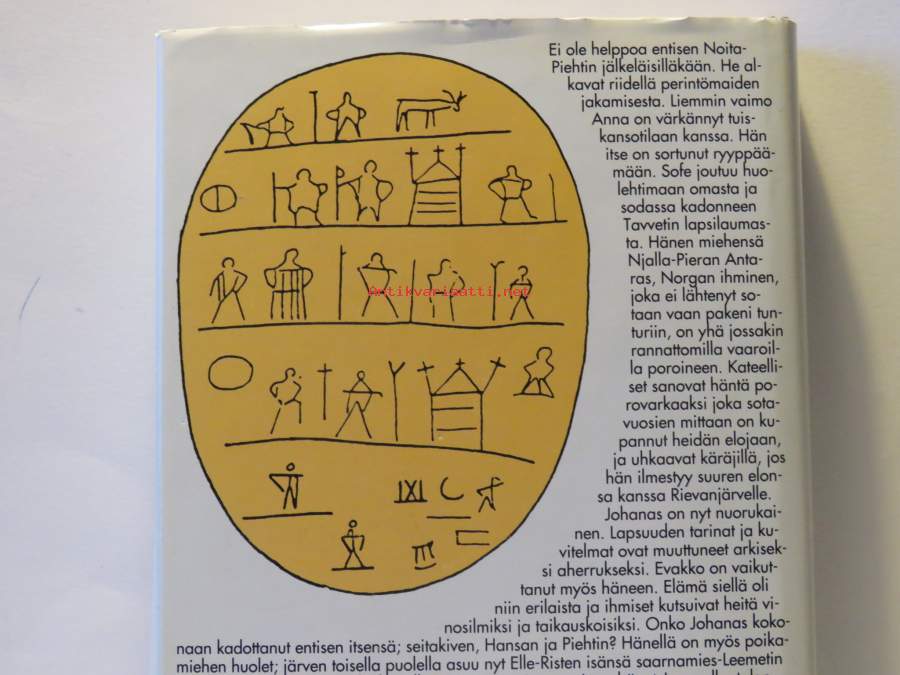 Ei ole helppoa entisen Noita-
Piehtin jälkeläisilläkään. He al-
kavat riidellä perintömaiden
jakamisesta. Liemmin vaimo
Anna on värkännyt tuis-
kansotilaan kanssa. Hän
itse on sortunut ryyppää-
mään. Sofe joutuu huo-
lehtimaan omasta ja
sodassa kadonneen
Tavvetin lapsilaumas-
ta. Hänen miehensä
Njalla-Pieran Anta-
ras, Norgan ihminen,
joka ei lähtenyt so-
taan vaan pakeni tun-
turiin, on yhä jossakin
rannattomilla vaaroil-
la poroineen. Kateelli-
set sanovat häntä po-
rovarkaaksi joka sota-
vuosien mittaan on ku-
pannut heidän elojaan,
ja uhkaavat käräjillä, jos
hän ilmestyy suuren elon-
sa kanssa Rievanjärvelle.
Johanas on nyt nuorukai-
nen. Lapsuuden tarinat ja ku-
vitelmat ovat muuttuneet arkisek-
si aherrukseksi. Evakko on vaikut-
tanut myös häneen. Elämä siellä oli
niin erilaista ja ihmiset kutsuivat heitä vi-
nosilmiksi ja taikauskoisiksi. Onko Johanas koko-
naan kadottanut entisen itsensä; seitakiven, Hansan ja Piehtin? Hänellä on myös poika-
miehen huolet; järven toisella puolella asuu nyt Elle-Risten isänsä saarnamies-Leemetin
Antikvariaatti.net